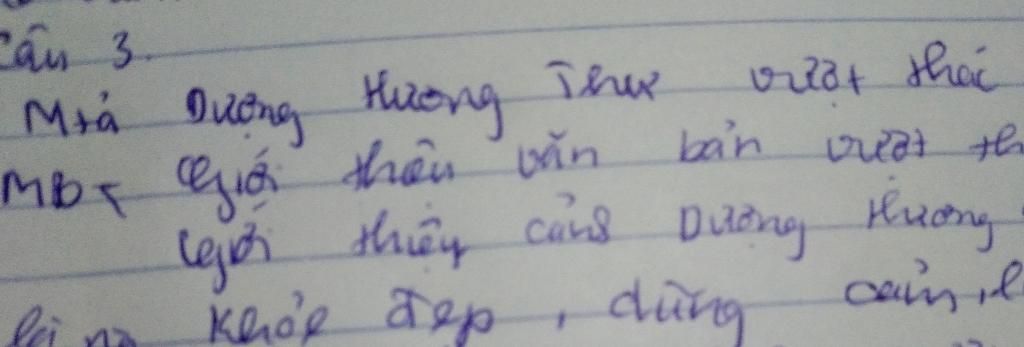 Câu 3.
Mtả Dượng Hương Thư vượt thác
MB < Giới thiệu văn bản vượt th
Giới thiệu cảng Dượng Hương
khỏe đẹp, dũng cảm,